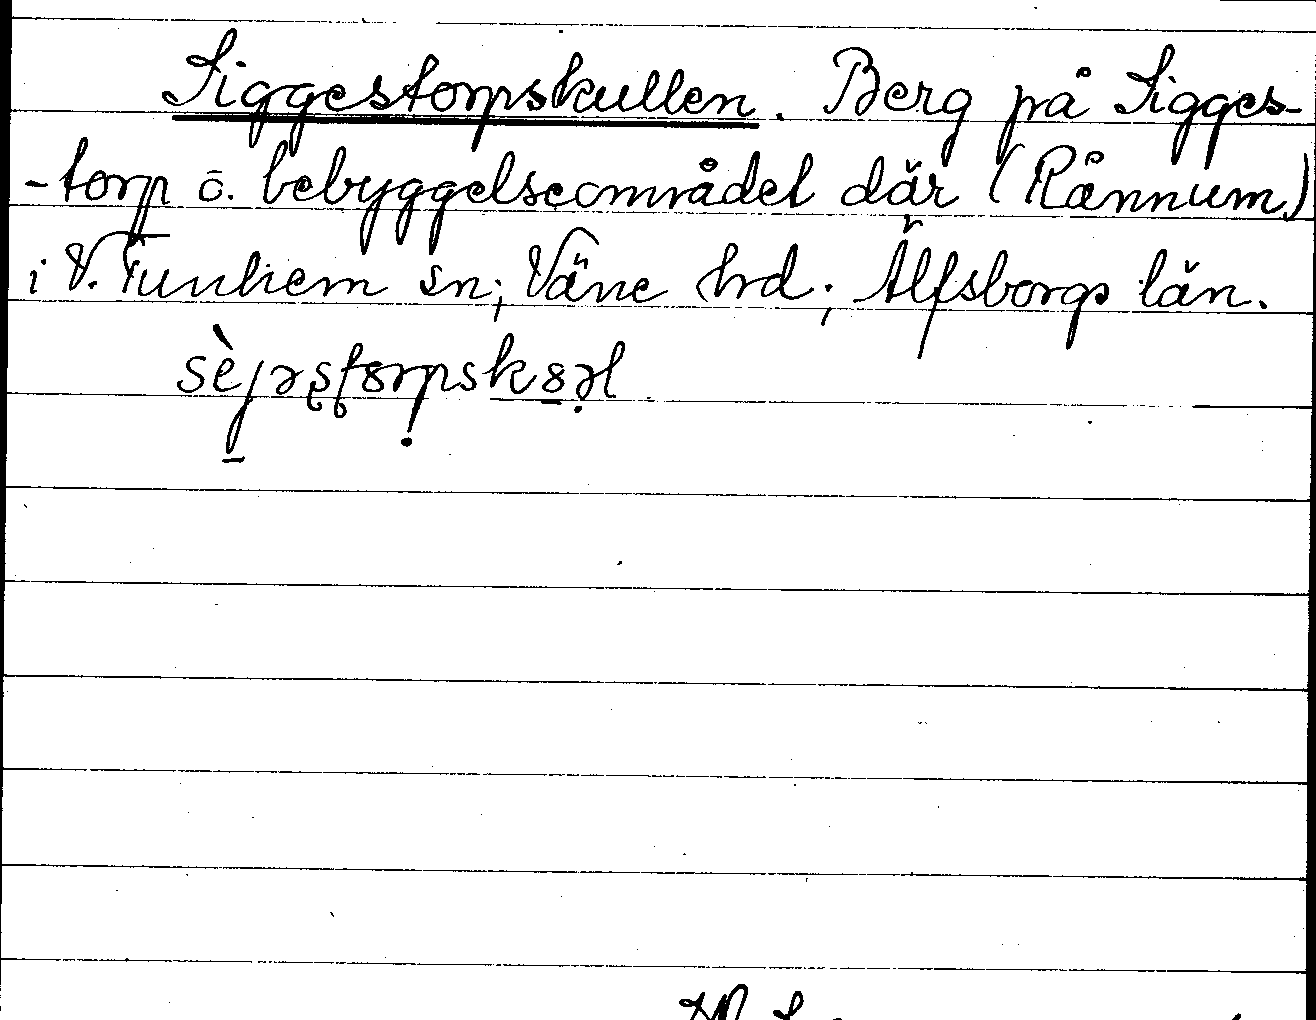 Siggestorpskullen. Berg på Sigges-
-torp ö. bebyggelseområdet där (Rånnum)
i V. Tunhem sn; Väne hd; Älfsborgs län.